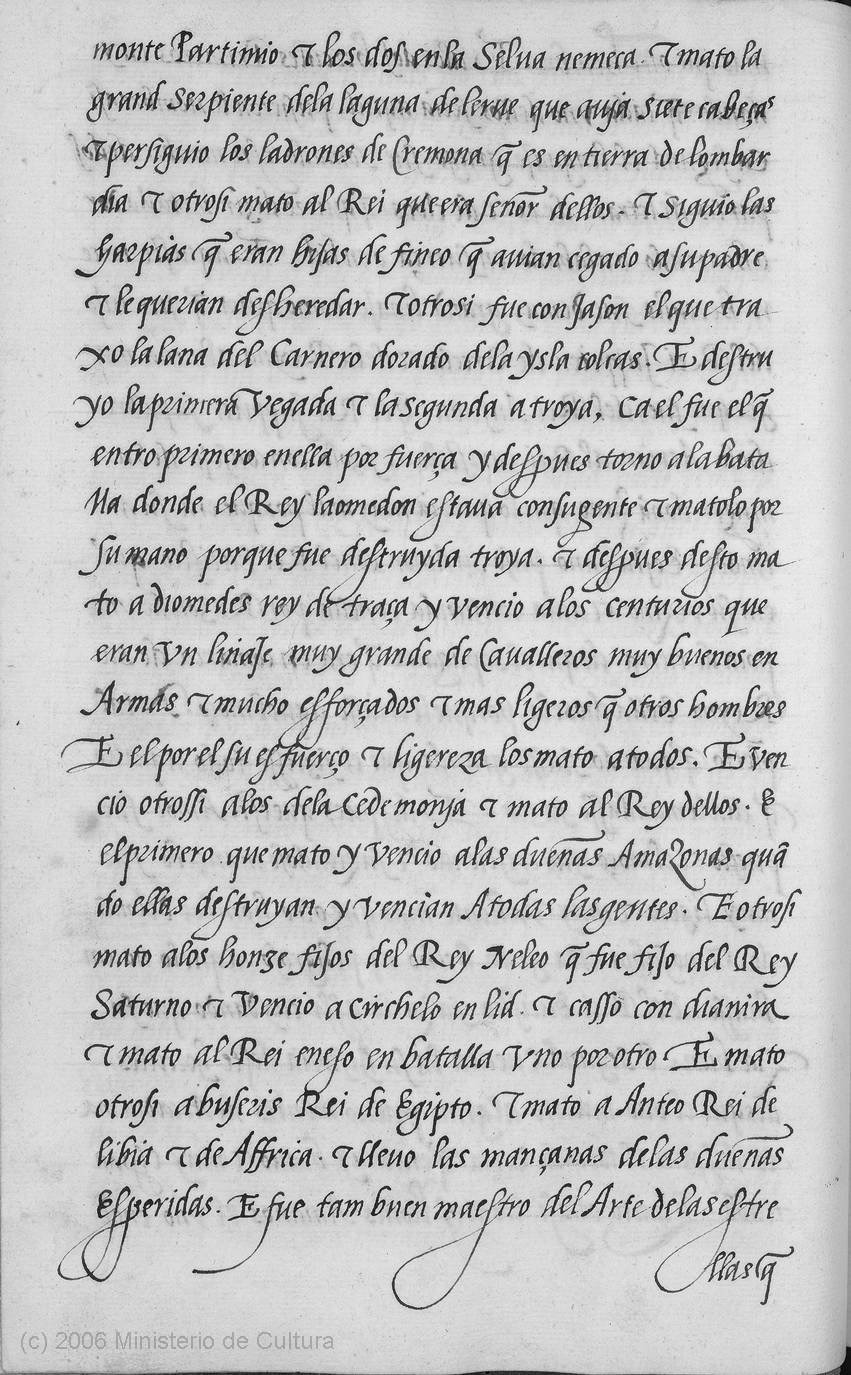 monte Partimio ⁊ los dos en la Selua nemeca. ⁊ mato la
grand Serpiente dela laguna de lerne que auja siete cabeças
⁊ persiguio los ladrones de Cremona q̃ es en tierra de lombar
dia ⁊ otrosi mato al Rei que era señor dellos. ⁊ siguio las
harpias q̃ eran hijas de fineo q̃ auian cegado a su padre
⁊ le querian desheredar. ⁊ otrosi fue con Jason el que tra
xo la lana del Carnero dorado dela ysla colcas. E destru
yo la primera Vegada ⁊ la segunda a troya, Ca el fue el q̃
entro primero enella por fuerça y despues torno a la bata
lla donde el Rey laomedon estaua con su gente ⁊ matolo por
su mano porque fue destruyda troya. ⁊ despues desto ma
to a diomedes rey de traça y vencio a los centurios que
eran Vn linaje muy grande de Caualleros muy buenos en
Armas ⁊ mucho esforçados ⁊ mas ligeros q̃ otros hombres
E el por el su esfuerço ⁊ ligereza los mato a todos. E ven
cio otrossi alos dela Cedemonja ⁊ mato al Rey dellos. &
el primero que mato y Vencio alas dueñas Amazonas quã
do ellas destruyan y vencian A todas las gentes. E otrosi
mato alos honze fijos del Rey Neleo q̃ fue fijo del Rey
Saturno ⁊ Vencio a Circhelo en lid. ⁊ casso con dianira
⁊ mato al Rei eneso en batalla Vno por otro E mato
otrosi a buseris Rei de Egipto. ⁊ mato a Anteo Rei de
libia ⁊ de Affrica. ⁊ lleuo las mançanas de las dueñas
Esperidas. E fue tam buen maestro del Arte de las estre
llas q̃
(c) 2006 Ministerio de Cultura